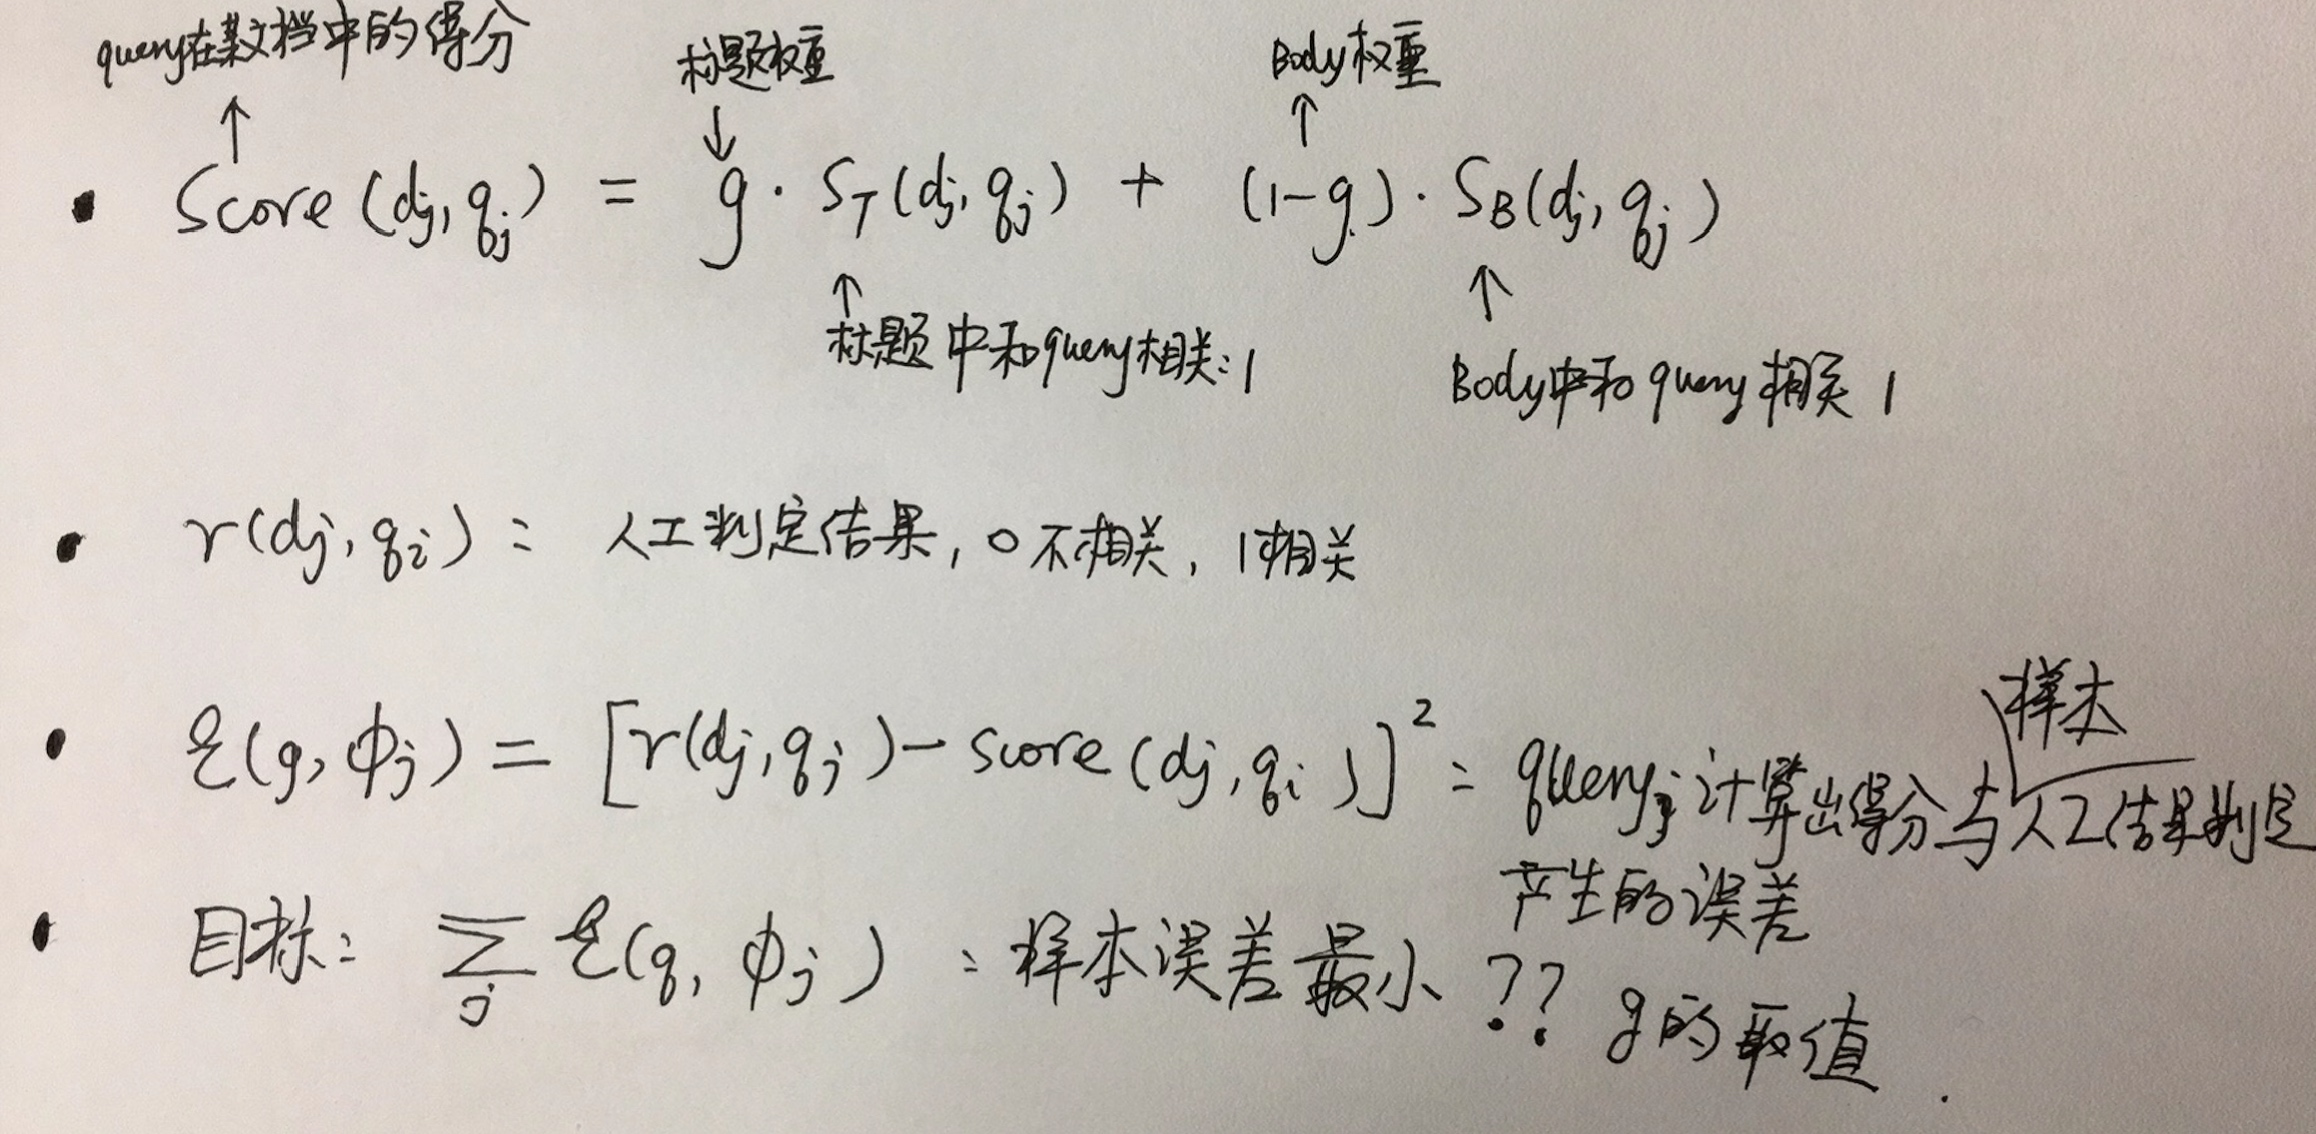 query在某文档中的得分
标题权重
Body权重
↑
↓
↑
• Score(dj, qj) = g · ST(dj, qj) + (1-g) · SB(dj, qj)
↑
↑
标题中和query相关:1
Body中和query相关 1
• r(dj, qi) : 人工判定结果, 0不相关, 1相关
样本
• ε(g, ϕj) = [r(dj, qj) - score(dj, qi)]² : queryj计算出得分与人工结果判定
产生的误差
• 目标: ∑j ε(q, ϕj) : 样本误差最小 ?? g的取值.